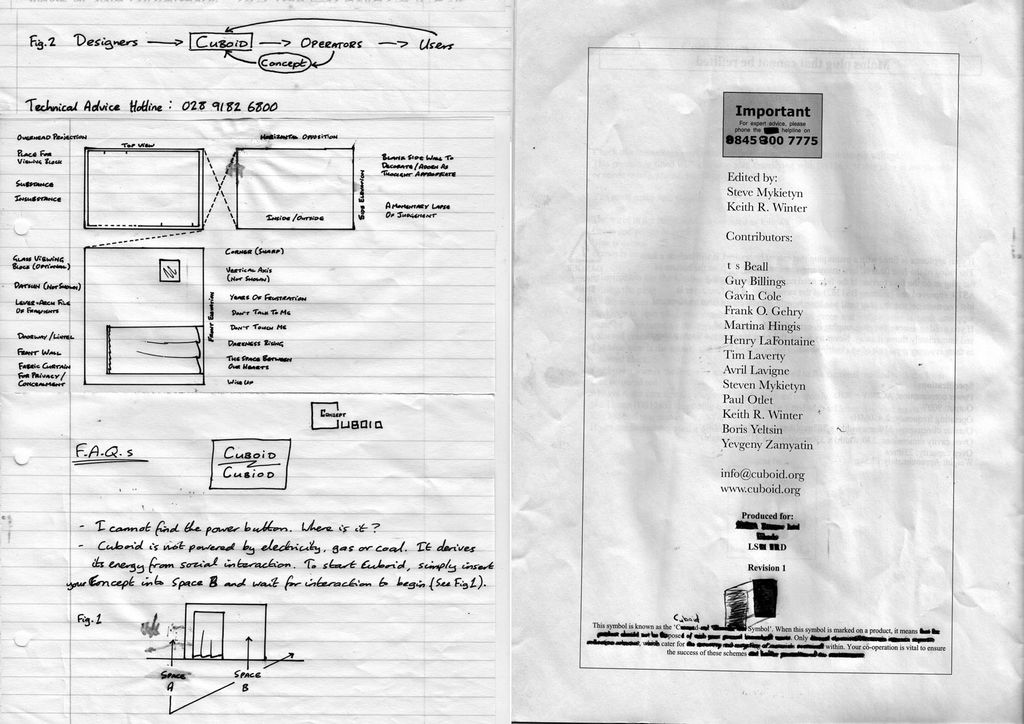 Fig.2 Designers → CUBOID → OPERATORS → Users
Concept
Technical Advice Hotline: 028 9182 6800
OVERHEAD PROJECTION
TOP VIEW
HORIZONTAL OPPOSITION
PLACE FOR
VIEWING BLOCK
SUBSTANCE
INSUBSTANCE
INSIDE/OUTSIDE
SIDE ELEVATION
BLANK SIDE WALL TO
DECORATE/ADORN AS
THOUGHT APPROPRIATE
A MOMENTARY LAPSE
OF JUDGEMENT
GLASS VIEWING
BLOCK (OPTIONAL)
DATSUN (NOT SHOWN)
LEVER-ARCH FILE
OF FRAGMENTS
DOORWAY/LINTEL
FRONT WALL
FABRIC CURTAIN
FOR PRIVACY/
CONCEALMENT
FRONT ELEVATION
CORNER (SHARP)
VERTICAL AXIS
(NOT SHOWN)
YEARS OF FRUSTRATION
DON'T TALK TO ME
DON'T TOUCH ME
DARKNESS RISING
THE SPACE BETWEEN
OUR HEARTS
WISE UP
CONCEPT
CUBOID
F.A.Q.s
CUBOID
CUBIOD
- I cannot find the power button. Where is it?
- Cuboid is not powered by electricity, gas or coal. It derives
its energy from social interaction. To start Cuboid, simply insert
your Concept into Space B and wait for interaction to begin (See Fig 1).
Fig.1
SPACE
A
SPACE
B
Important
For expert advice, please
phone the helpline on
0845 300 7775
Edited by:
Steve Mykietyn
Keith R. Winter
Contributors:
t s Beall
Guy Billings
Gavin Cole
Frank O. Gehry
Martina Hingis
Henry LaFontaine
Tim Laverty
Avril Lavigne
Steven Mykietyn
Paul Otlet
Keith R. Winter
Boris Yeltsin
Yevgeny Zamyatin
info@cuboid.org
www.cuboid.org
Produced for:
Revision 1
Cuboid
This symbol is known as the ' Symbol'. When this symbol is marked on a product, it means
Only
cater for within. Your co-operation is vital to ensure
the success of these schemes